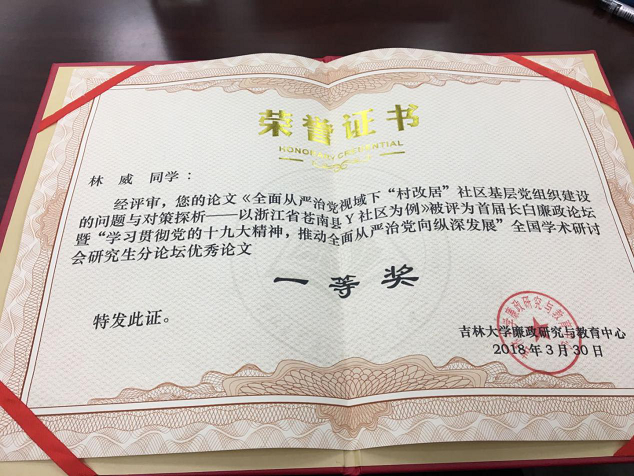 荣誉证书
HONORARY CREDENTIAL
林 威 同学：
经评审，您的论文《全面从严治党视域下“村改居”社区基层党组织建设
的问题与对策探析——以浙江省苍南县Y社区为例》被评为首届长白廉政论坛
暨“学习贯彻党的十九大精神，推动全面从严治党向纵深发展”全国学术研讨
会研究生分论坛优秀论文
一等奖
特发此证。
吉林大学廉政研究与教育中心
2018年3月30日